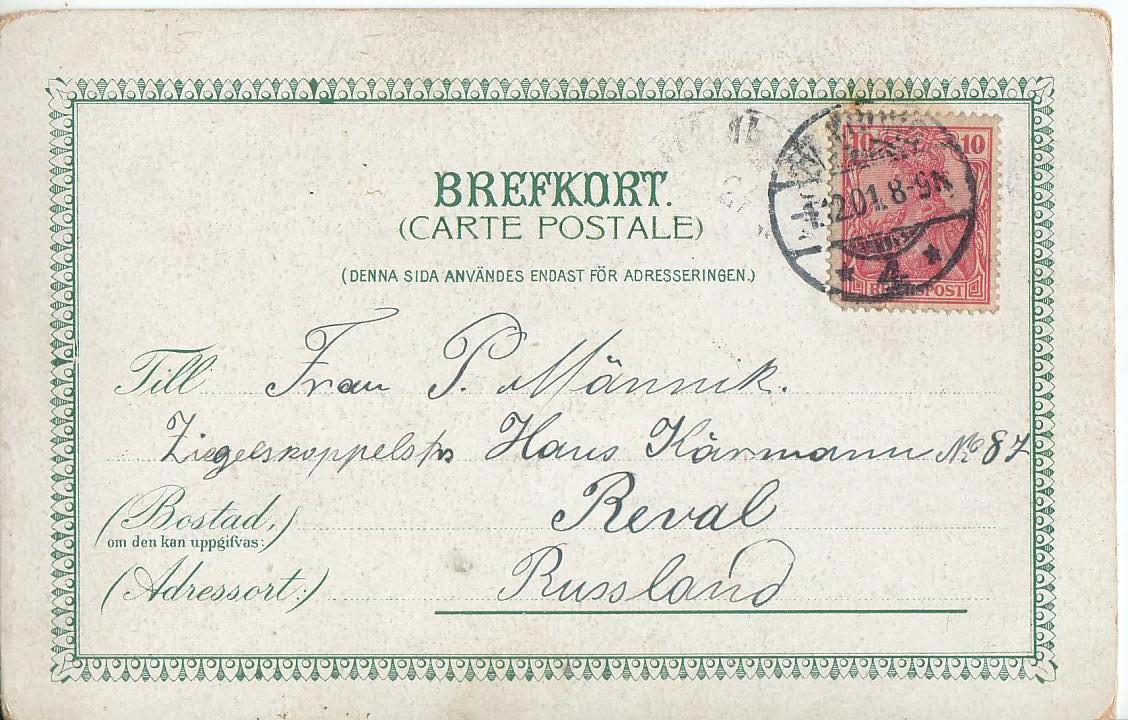 BREFKORT.
(CARTE POSTALE)
(DENNA SIDA ANVÄNDES ENDAST FÖR ADRESSERINGEN.)
10 10
2.01. 8-9N
* 4. *
REICHSPOST
Till Frau P. Männik.
Ziegelskoppelstr Haus Kärmann No 87
(Bostad,) Reval
om den kan uppgifvas:
(Adressort:) Russland